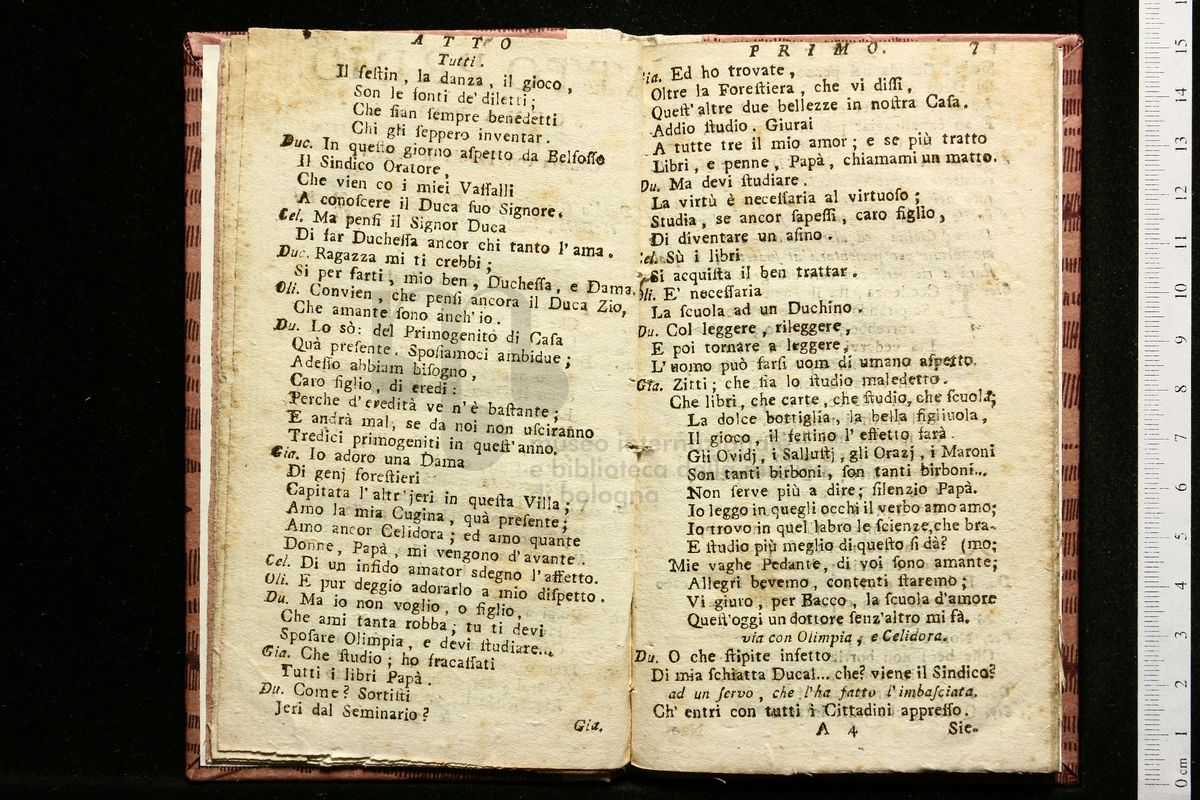 ATTO
Tutti.
Il feſtin, la danza, il gioco,
Son le fonti de' diletti;
Che ſian ſempre benedetti
Chi gli ſeppero inventar.
Duc. In queſto giorno aſpetto da Belfoſſo
Il Sindico Oratore,
Che vien co i miei Vaſſalli
A conoſcere il Duca ſuo Signore.
Cel. Ma penſi il Signor Duca
Di far Ducheſſa ancor chi tanto l'ama.
Duc. Ragazza mi ti crebbi;
Sì per farti, mio ben, Ducheſſa, e Dama.
Oli. Convien, che penſi ancora il Duca Zio,
Che amante ſono anch'io.
Du. Lo sò: del Primogenito di Caſa
Quà preſente. Spoſiamoci ambidue;
Adeſſo abbiam biſogno,
Caro figlio, di eredi:
Perche d'eredità ve n'è baſtante;
E andrà mal, se da noi non uſciranno
Tredici primogeniti in queſt'anno.
Gia. Io adoro una Dama
Di genj foreſtieri
Capitata l'altr'jeri in queſta Villa;
Amo la mia Cugina, quà preſente;
Amo ancor Celidora; ed amo quante
Donne, Papà, mi vengono d'avante.
Cel. Di un infido amator sdegno l'affetto.
Oli. E pur deggio adorarlo a mio diſpetto.
Du. Ma io non voglio, o figlio,
Che ami tanta robba; tu ti devi
Spoſare Olimpia, e devi ſtudiare...
Gia. Che ſtudio; ho fracaſſati
Tutti i libri Papà.
Du. Come? Sortiſti
Jeri dal Seminario?
Gia.
PRIMO. 7
Gia. Ed ho trovate,
Oltre la Foreſtiera, che vi diſſi,
Queſt'altre due bellezze in noſtra Caſa.
Addio ſtudio. Giurai
A tutte tre il mio amor; e se più tratto
Libri, e penne, Papà, chiamami un matto.
Du. Ma devi ſtudiare.
La virtù è neceſſaria al virtuoſo;
Studia, se ancor ſapeſſi, caro figlio,
Di diventare un aſino.
Cel. Sù i libri
Si acquiſta il ben trattar.
Oli. E' neceſſaria
La ſcuola ad un Duchino.
Du. Col leggere, rileggere,
E poi tornare a leggere,
L'uomo può farſi uom di umano aſpetto.
Gia. Zitti; che ſia lo ſtudio maledetto.
Che libri, che carte, che ſtudio, che ſcuola;
La dolce bottiglia, la bella figliuola,
Il gioco, il feſtino l'effetto farà.
Gli Ovidj, i Salluſtj, gli Orazj, i Maroni
Son tanti birboni, ſon tanti birboni...
Non ſerve più a dire; ſilenzio Papà.
Io leggo in quegli occhi il verbo amo amo;
Io trovo in quel labro le ſcienze, che bra-
E ſtudio più meglio di queſto ſi dà? (mo;
Mie vaghe Pedante, di voi ſono amante;
Allegri bevemo, contenti ſtaremo;
Vi giuro, per Bacco, la ſcuola d'amore
Queſt'oggi un dottore ſenz'altro mi fà.
via con Olimpia, e Celidora.
Du. O che ſtipite infetto
Di mia ſchiatta Ducal... che? viene il Sindico?
ad un ſervo, che l'ha fatto l'imbaſciata.
Ch'entri con tutti i Cittadini appreſſo.
A 4 Sie-
museo internazionale
e biblioteca della musica
di bologna
0 cm 1 2 3 4 5 6 7 8 9 10 11 12 13 14 15